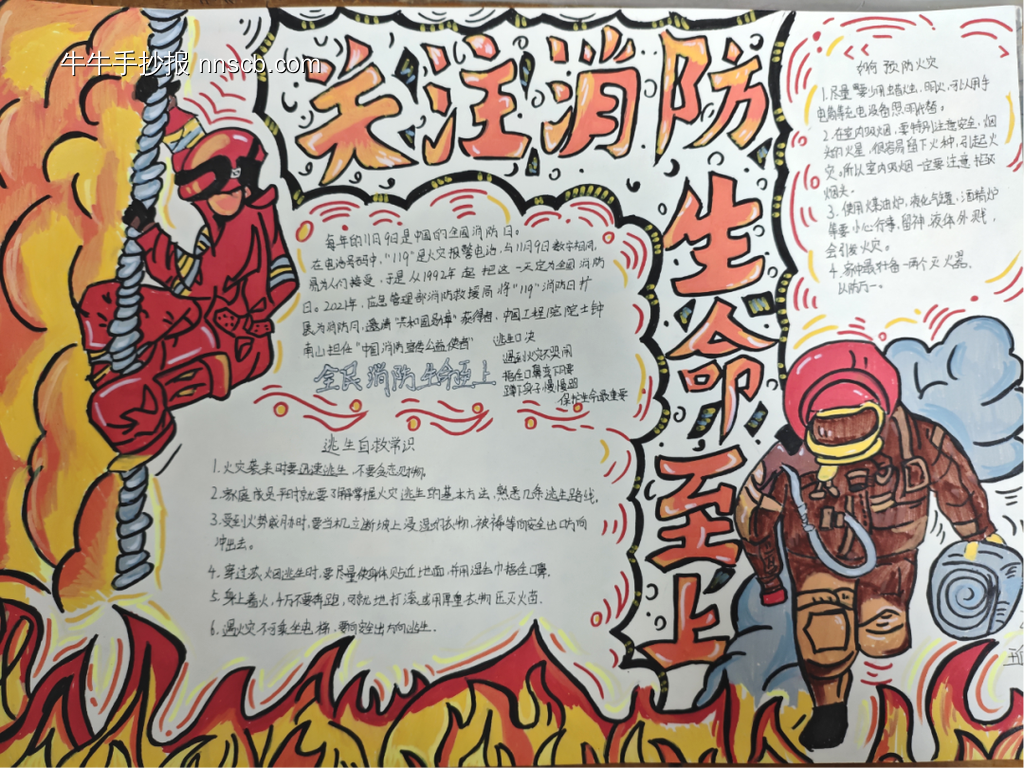 牛牛手抄报 nnscb.com
关注消防
生命至上
每年的11月9日是中国的全国消防日。
在电话号码中，"119"是火灾报警电话，与11月9日数字相同，
易为人们接受，于是从1992年起把这一天定为全国消防
日。2021年，应急管理部消防救援局将"119"消防日扩
展为消防月，邀请"共和国勋章"获得者，中国工程院院士钟
南山担任"中国消防宣传公益使者"
逃生口诀
遇到火灾不哭闹
捂住口鼻
蹲下身子慢慢跑
保护生命最重要
全民消防 生命至上
逃生自救常识
1.火灾袭来时要迅速逃生，不要贪恋财物。
2.家庭成员平时就要了解掌握火灾逃生的基本方法，熟悉几条逃生路线。
3.受到火势威胁时，要当机立断披上浸湿的衣物、被褥等向安全出口方向
冲出去。
4.穿过浓烟逃生时，要尽量使身体贴近地面，并用湿毛巾捂住口鼻。
5.身上着火，千万不要奔跑，可就地打滚或用厚重衣物压灭火苗。
6.遇火灾不可乘坐电梯，要向安全出口方向逃生。
如何预防火灾
1.尽量要少用蜡烛、明火，可以用手
电筒等充电设备照明代替。
2.在室内吸烟，要特别注意安全，烟
头的火星，很容易留下火种，引起火
灾。所以室内吸烟一定要注意掐灭
烟头。
3.使用煤油炉、液化气罐、酒精炉
等要小心行事，留神液体外溅，
会引发火灾。
4.家中最好备一两个灭火器。
以防万一。